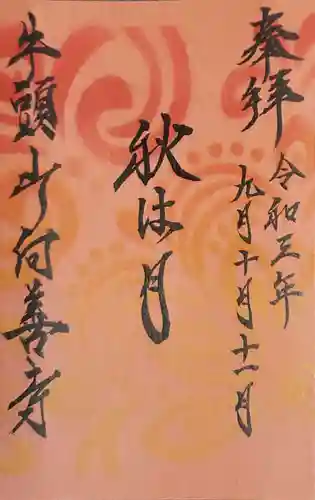 奉拝
令和三年
九月十月十一月
秋は月
牛頭山
向善寺